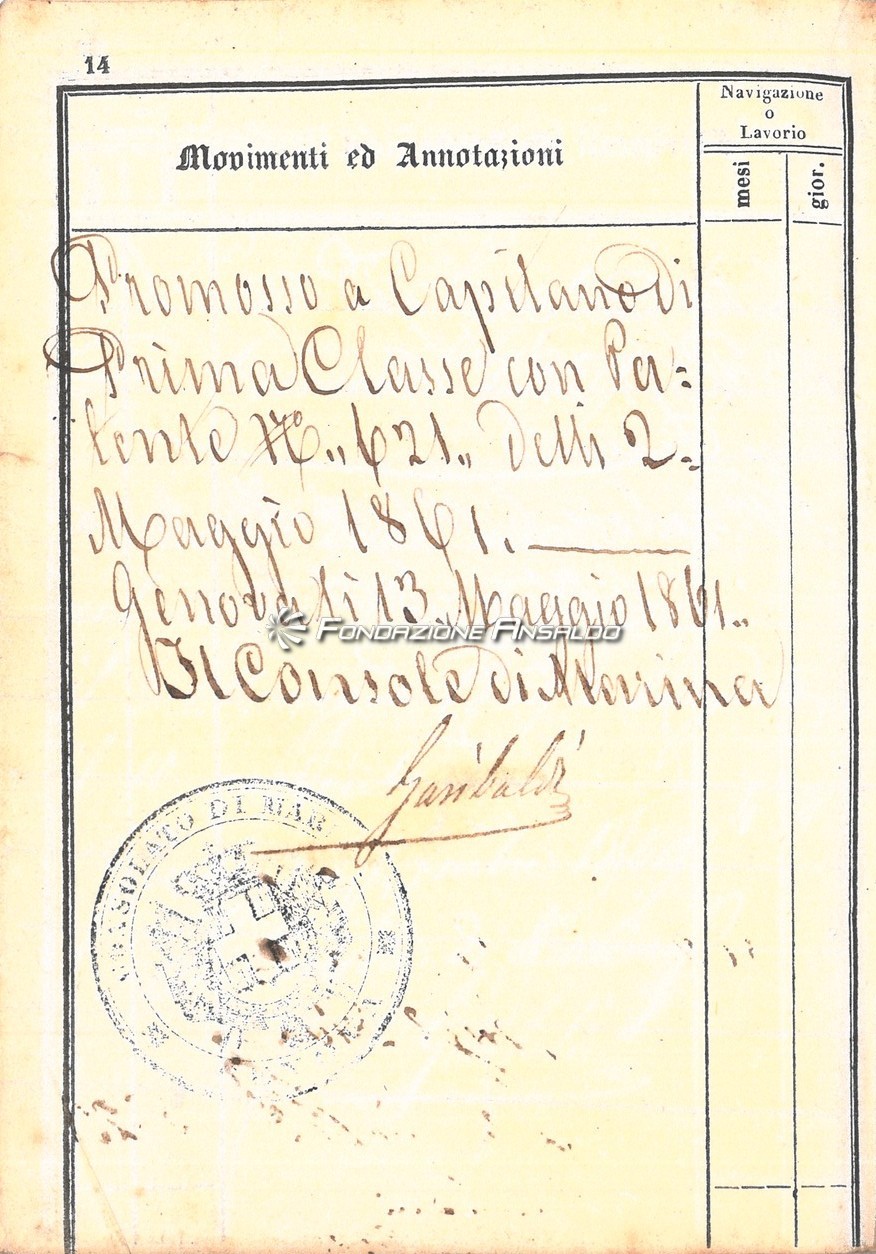 14
Movimenti ed Annotazioni
Navigazione
o
Lavorio
mesi
gior.
Promosso a Capitano di
Prima Classe con Pa=
tente No„ 621„ delli 2=
Maggio 1861.
Genova li 13 Maggio 1861„
FONDAZIONE ANSALDO
Il Console di Marina
Garibaldi
CONSOLATO DI MAR